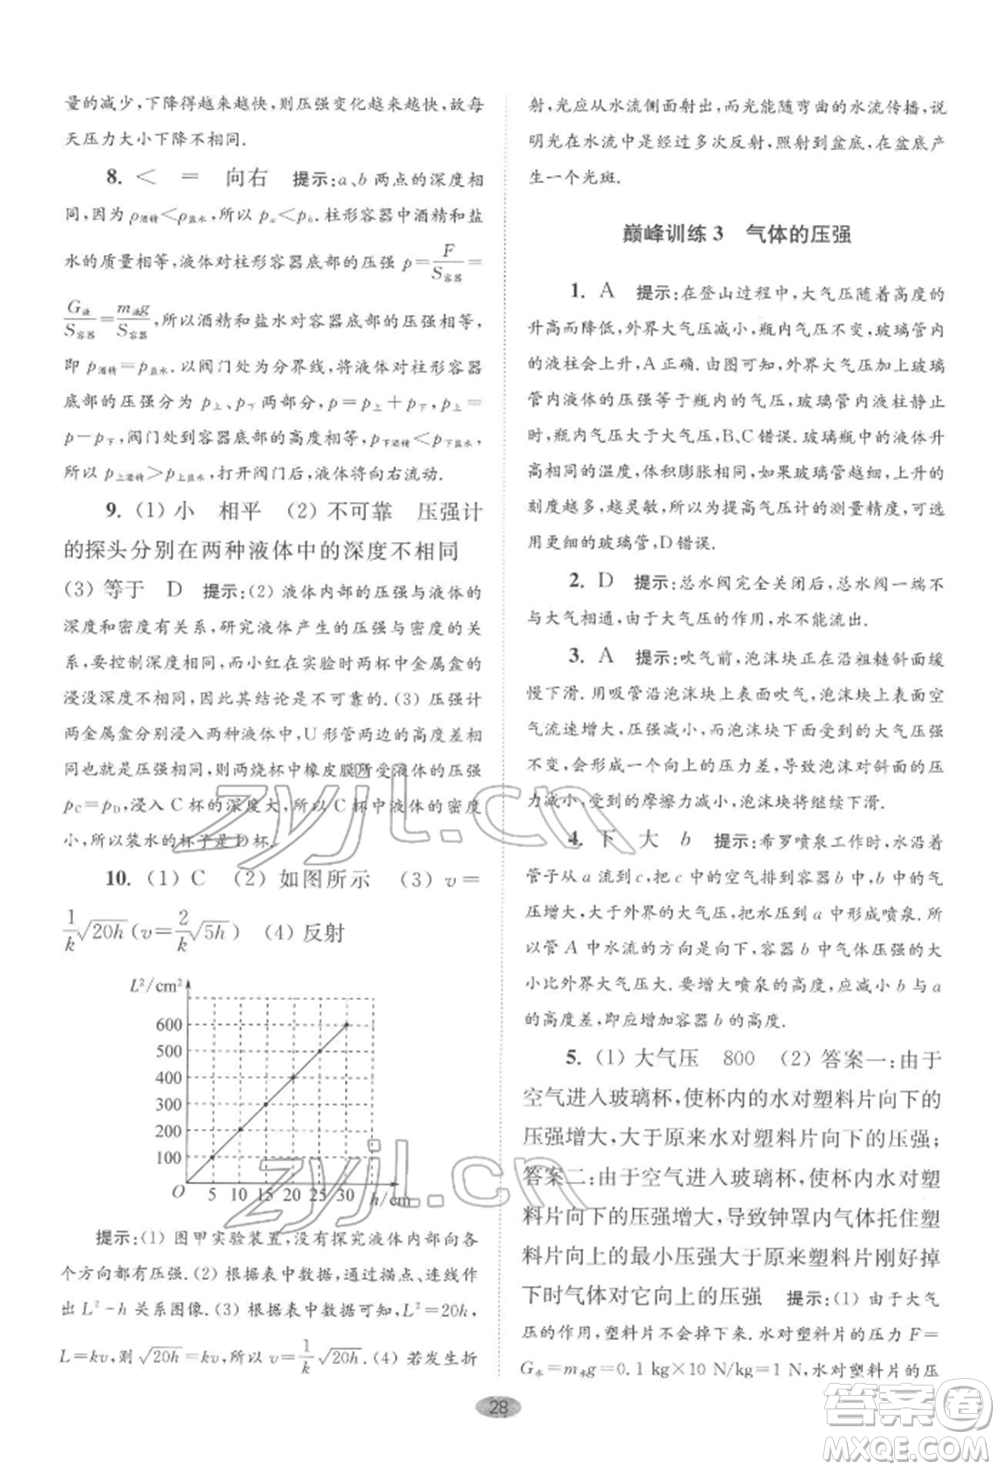 量的减少,下降得越来越快,则压强变化越来越快,故每
天压力大小下降不相同.
8. < = 向右 提示:a、b 两点的深度相
同,因为 ρ酒精<ρ盐水,所以 pa<pb. 柱形容器中酒精和盐
水的质量相等,液体对柱形容器底部的压强 p=F/S容器=
G液/S容器=m液g/S容器,所以酒精和盐水对容器底部的压强相等,
即 p酒精=p盐水. 以阀门处为分界线,将液体对柱形容器
底部的压强分为 p上、p下 两部分,p=p上+p下,p上=
p-p下,阀门处到容器底部的高度相等,p下酒精<p下盐水,
所以 p上酒精>p上盐水,打开阀门后,液体向右流动.
9. (1) 小 相平 (2) 不可靠 压强计
的探头分别在两种液体中的深度不相同
(3) 等于 D 提示:(2) 液体内部的压强与液体的
深度和密度有关系,研究液体产生的压强与密度的关系,
要控制深度相同,而小红在实验时两杯中金属盒的
浸没深度不相同,因此其结论是不可靠的.(3) 压强计
两金属盒分别浸入两种液体中,U 形管两边的高度差相
同,这表明,两烧杯中橡皮膜所受液体的压强
pC=pD,浸入 C 杯的深度大,所以 C 杯中液体的密度
小,所以装水的杯子是 D 杯.
10. (1) C (2) 如图所示 (3) v=
1/k√20h(v=2/k√5h) (4) 反射
L²/cm²
600
500
400
300
200
100
O 5 10 15 20 25 30 h/cm
提示:(1) 图甲实验装置,没有探究液体内部向各
个方向都有压强.(2) 根据表中数据,通过描点、连线作
出 L²-h 关系图像.(3) 根据表中数据可知,L²=20h,
L=kv,则√20h=kv,所以 v=1/k√20h.(4) 若发生折
射,光应从水流侧面射出,而光能随弯曲的水流传播,说
明光在水流中多次反射,照射到盆底,在盆底产
生一个光斑.
巅峰训练 3 气体的压强
1. A 提示:在登山过程中,大气压随着高度的
升高而降低,外界大气压减小,瓶内气压不变,玻璃管内
的液柱会上升,A 正确. 由图可知,外界大气压与玻璃
管内液体的压强等于瓶内的气压,玻璃管内液柱静止
时,瓶内气压大于大气压,B、C 错误. 玻璃瓶中的液体升
高相同的温度,体积膨胀相同,如果玻璃管越细,上升的
刻度越多,越灵敏,所以为了提高气压计的测量精度,应
用更细的玻璃管,D 错误.
2. D 提示:总水阀完全关闭后,总水阀一端
与大气相通,由于大气压的作用,水不能流出.
3. A 提示:吹气前,泡沫块正在沿粗糙斜面缓
慢下滑. 用吸管沿泡沫块上表面吹气,泡沫块上表面空
气流速增大,压强变小,而泡沫块下面受到的大气压强
不变,会形成向上的压力差,导致泡沫块对斜面的压力
减小,所受到的摩擦力减小,泡沫块将继续下滑.
4. 下 大 b 提示:希罗喷泉工作时,水沿着
管子从 a 流向 c,把 c 中的空气排到容器 b 中,容器 b 中
气压增大,大于外界的大气压,水从 b 流到 a 形成喷泉.
所以管 A 中水流的方向是向下,容器 b 中气体压强与
外界大气压相比,气体压强大. 要增大喷泉的高度,需要
增大容器 b 中的压强,应减小 c 的高度,增大 b 与 a 的
高度差,即应增加容器 b 的高度.
5. (1) 大气压 800 (2) 答案一:由于
空气进入玻璃杯,使杯内的水对塑料片向下的
压强增大,大于原来水对塑料片向下的压强;
答案二:由于空气进入玻璃杯,使杯内水对塑
料片向下的压强增大,导致钟罩内气体托住塑
料片向上的最小压强大于原来塑料片刚好掉
下时气体对它向上的压强 提示:(1) 由于大气
压的作用,塑料片不会掉下来. 水对塑料片的压力 F=
G水=m水g=0.1 kg×10 N/kg=1 N,水对塑料片的压
28
zyjl.cn
zyjl.cn
答案圈
MXQE.COM